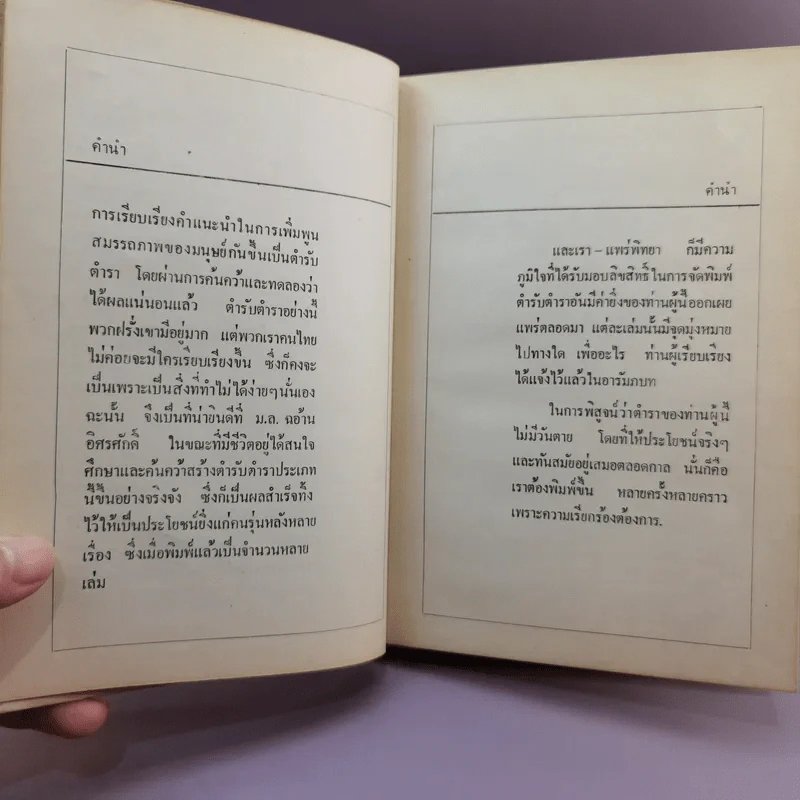 คำนำ
การเรียบเรียงคำแนะนำในการเพิ่มพูน
สมรรถภาพของมนุษย์กันขึ้นเป็นตำรับ
ตำรา โดยผ่านการค้นคว้าและทดลองว่า
ได้ผลแน่นอนแล้ว ตำรับตำราอย่างนี้
พวกฝรั่งเขามีอยู่มาก แต่พวกเราคนไทย
ไม่ค่อยจะมีใครเรียบเรียงขึ้น ซึ่งก็คงจะ
เป็นเพราะเป็นสิ่งที่ทำไม่ได้ง่ายๆนั่นเอง
ฉะนั้น จึงเป็นที่น่ายินดีที่ ม.ล. ฉอ้าน
อิศรศักดิ์ ในขณะที่มีชีวิตอยู่ได้สนใจ
ศึกษาและค้นคว้าสร้างตำรับตำราประเภท
นี้ขึ้นอย่างจริงจัง ซึ่งก็เป็นผลสำเร็จทิ้ง
ไว้ให้เป็นประโยชน์ยิ่งแก่คนรุ่นหลังหลาย
เรื่อง ซึ่งเมื่อพิมพ์แล้วเป็นจำนวนหลาย
เล่ม
คำนำ
และเรา – แพร่พิทยา ก็มีความ
ภูมิใจที่ได้รับมอบลิขสิทธิ์ในการจัดพิมพ์
ตำรับตำราอันมีค่ายิ่งของท่านผู้นี้ออกเผย
แพร่ตลอดมา แต่ละเล่มนั้นมีจุดมุ่งหมาย
ไปทางใด เพื่ออะไร ท่านผู้เรียบเรียง
ได้แจ้งไว้แล้วในอารัมภบท
ในการพิสูจน์ว่าตำราของท่านผู้นี้
ไม่มีวันตาย โดยที่ให้ประโยชน์จริงๆ
และทันสมัยอยู่เสมอตลอดกาล นั่นก็คือ
เราต้องพิมพ์ขึ้น หลายครั้งหลายคราว
เพราะความเรียกร้องต้องการ.